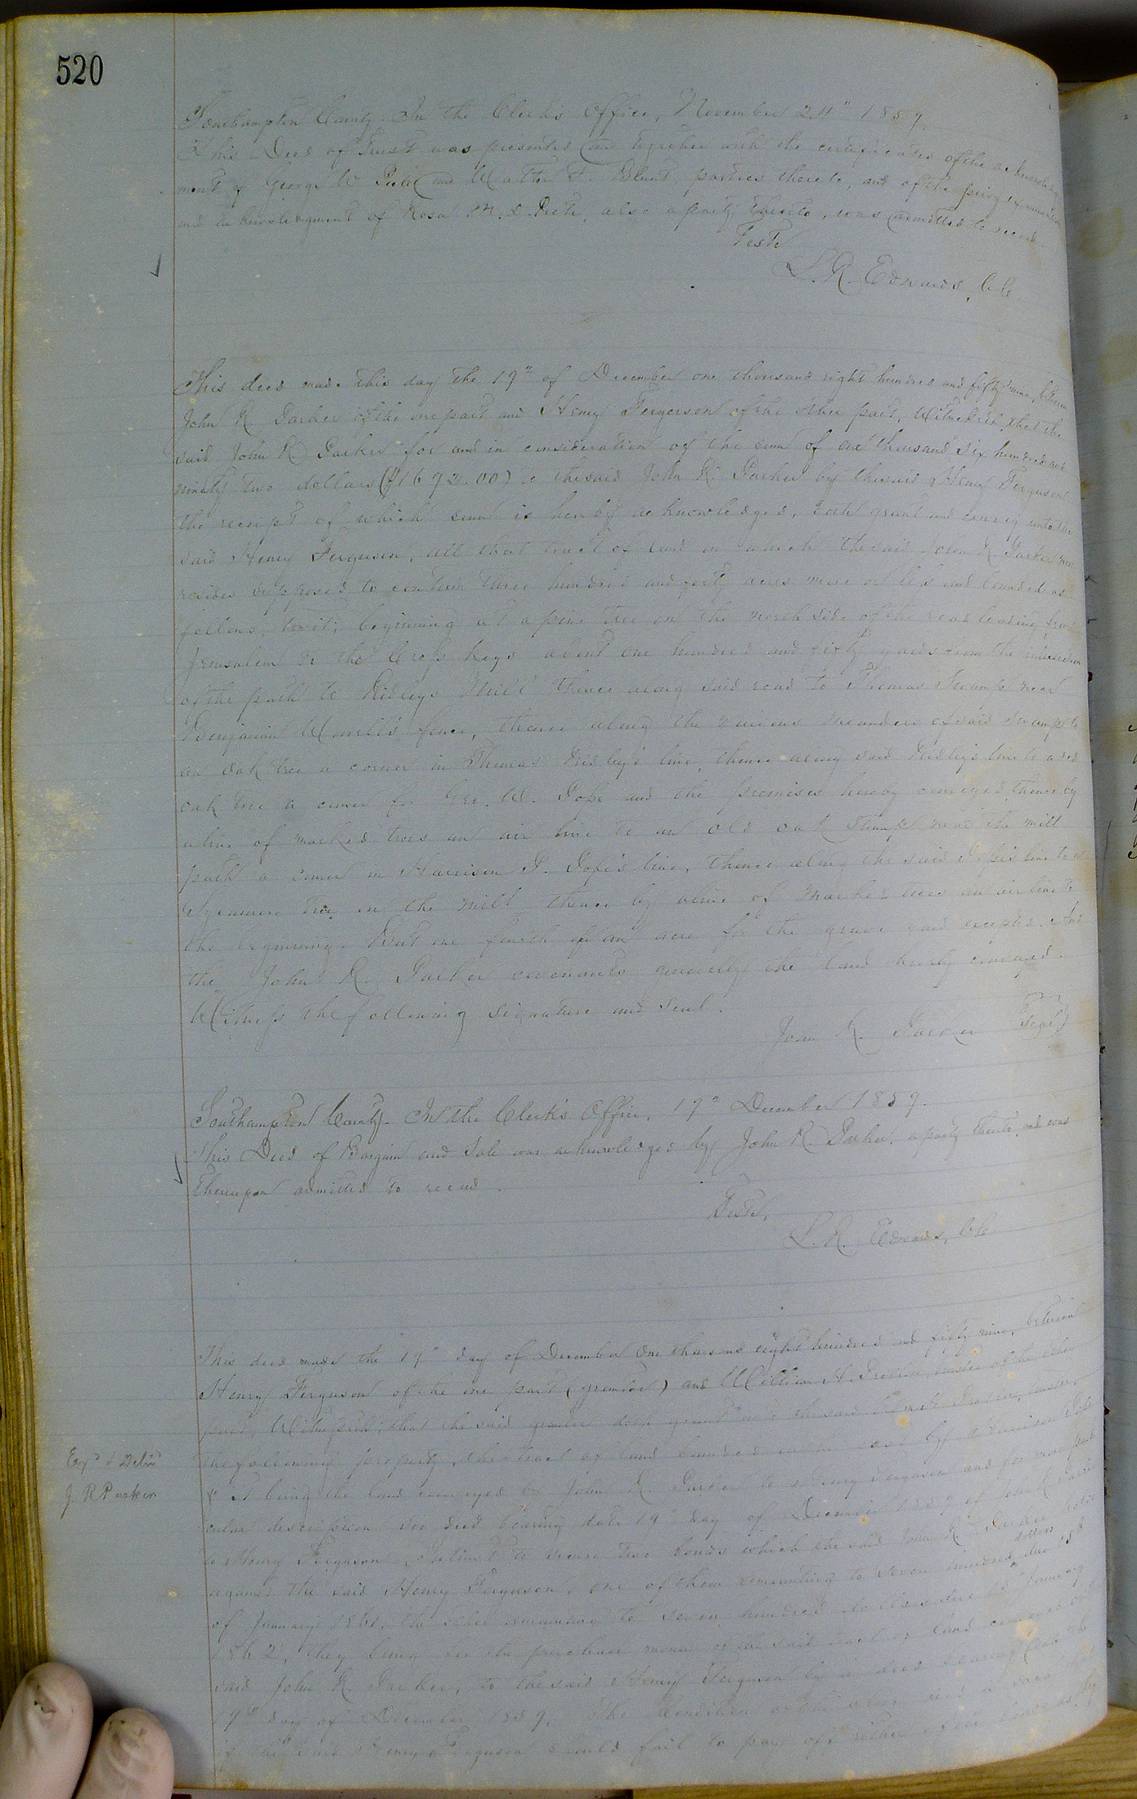 520
Southampton County. In the Clerk's Office, November 24" 1859.
This Deed of Trust was presented and together with the certificates of the acknowledg
ment of George W. Pete and Watten F. Blunt parties thereto, and of the privy examination
and acknowledgment of Rosa M. S. Pete, also a party thereto, was admitted to record.
Teste
L. R. Edwards, C.C.
This deed made this day the 19th of December one thousand eight hundred and fifty nine, between
John R. Parker of the one part and Henry Ferguson of the other part, Witnesseth, that the
said John R Parker for and in consideration of the sum of one thousand six hundred and
ninety two dollars ($1692.00) to the said John R. Parker by the said Henry Ferguson
the receipt of which sum is hereby acknowledged, doth grant and convey unto the
said Henry Ferguson, all that tract of land on which the said John R. Parker now
resides supposed to contain three hundred and forty acres more or less and bounded as
follows, towit; beginning at a pine tree on the north side of the road leading from
Jerusalem to the Cross Keys about one hundred and sixty yards from the intersection
of the path to Ridleys Mill thence along said road to Thomas Swamp near
Benjamin Worrell's fence, thence along the various meanders of said swamp to
an oak tree a corner in Thomas Ridley's line, thence along said Ridley's line to a red
oak tree a corner for Geo. W. Pope and the premises hereby conveyed, thence by
a line of marked trees an air line to an old oak stump near the mill
path a corner in Harrison P. Pope's line, thence along the said Pope's line to a
Sycamore tree in the mill thence by a line of marked trees an air line to
the beginning. But one fourth of an acre for the grave yard excepted. And
the John R. Parker covenants generally the land hereby conveyed.
Witness the following signature and seal.
John R. Parker {Seal}
Southampton County. In the Clerk's Office, 19th December 1859.
This Deed of Bargain and Sale was acknowledged by John R. Parker, a party thereto and was
thereupon admitted to record.
Teste,
L. R. Edwards, C.C.
This deed made the 19th day of December one thousand eight hundred and fifty nine, between
Henry Ferguson of the one part (grantor) and William H. trustee of the other
part, Witnesseth, that the said grantor doth grant unto the said trustee,
the following property, the tract of land bounded on the by Harrison Pope
& it being the land conveyed by John R. Parker to Henry Ferguson and for more parti
cular description see deed bearing date 19th day of December 1859 of John R. Parker
to Henry Ferguson, In trust to secure two bonds which the said John R. Parker holds
against the said Henry Ferguson, one of them amounting to seven hundred dollars due 1st
of January 1861, the other amounting to seven hundred dollars due 1st January
1862, they being for the purchase money of the said tract of land conveyed by
said John R. Parker, to the said Henry Ferguson by a deed bearing date the
19th day of December 1859. The condition of the deed
if the said Henry Ferguson should fail to pay off either of the bonds as they
Ex'd & Deliv'd
J. R Parker